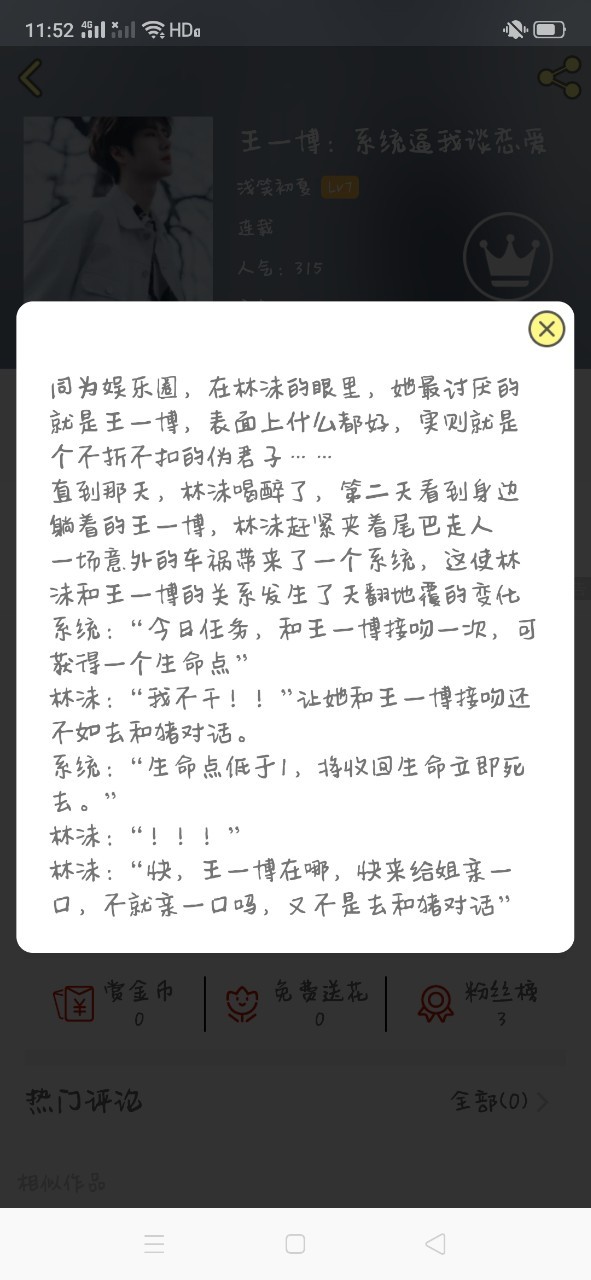 11:52 4G HD
王一博：系统逼我谈恋爱
浅笑初夏 Lv7
连载
人气：315
同为娱乐圈，在林沫的眼里，她最讨厌的
就是王一博，表面上什么都好，实则就是
个不折不扣的伪君子……
直到那天，林沫喝醉了，第二天看到身边
躺着的王一博，林沫赶紧夹着尾巴走人
一场意外的车祸带来了一个系统，这使林
沫和王一博的关系发生了天翻地覆的变化
系统：“今日任务，和王一博接吻一次，可
获得一个生命点”
林沫：“我不干！！”让她和王一博接吻还
不如去和猪对话。
系统：“生命点低于1，将收回生命立即死
去。”
林沫：“！！！”
林沫：“快，王一博在哪，快来给姐亲一
口，不就亲一口吗，又不是去和猪对话”
赏金币 免费送花 粉丝榜
0 0 3
热门评论 全部(0)
相似作品